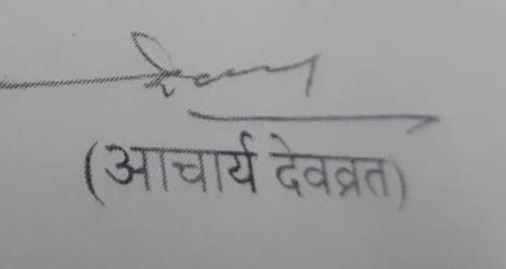 (आचार्य देवव्रत)